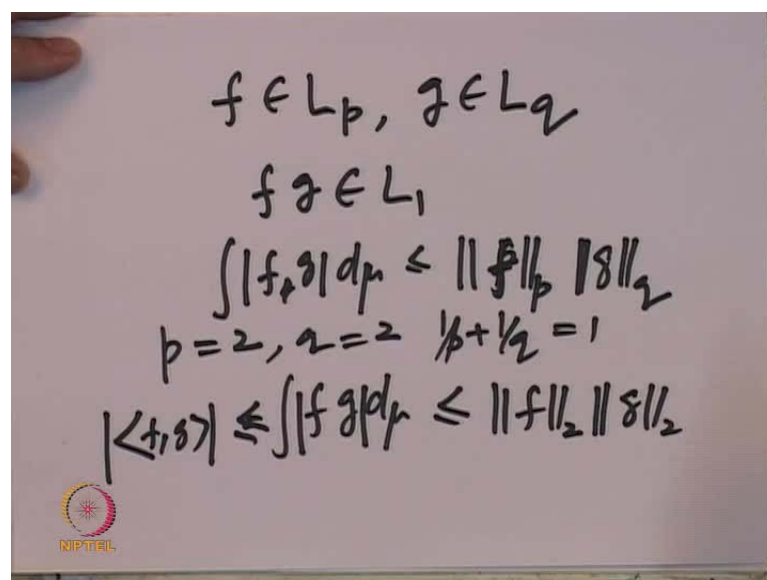 f ∈ L_p, g ∈ L_q
f g ∈ L_1
∫|f g| dμ ≤ ||f||_p ||g||_q
p = 2, q = 2 1/p + 1/q = 1
|<f, g>| ≤ ∫|f g| dμ ≤ ||f||_2 ||g||_2
NPTEL